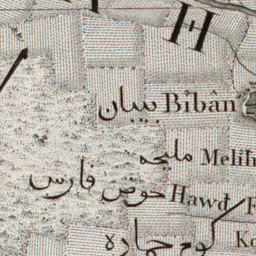 H
بيبان Bîbân
مليحه Melîh
حوض فارس Hawd F
كوم حماره Ko